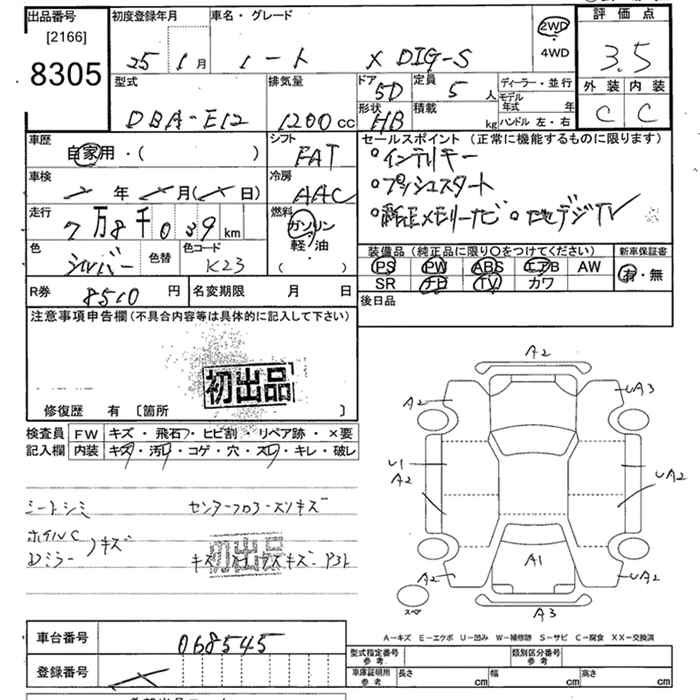 出品番号
[2166]
8305
初度登録年月
25 1 月
車名・グレード
ノート X DIG-S
2WD
4WD
評価点
3.5
外装 内装
C C
型式
DBA-E12
排気量
1200 cc
ドア
5D
定員
5 人
形状
HB
積載
kg
ディーラー・並行
モデル
年式 年
ハンドル 左・右
車歴
自家用・( )
シフト
FAT
車検
年 月( 日)
冷房
AAC
走行
7万8千039 km
燃料
ガソリン
軽・油
( )
色
シルバー
色替
色コード
K23
セールスポイント (正常に機能するものに限ります)
インテリキー
プッシュスタート
純正メモリーナビ 地デジTV
装備品 (純正品に限り〇をつけてください)
PS PW ABS エアB AW
SR ナビ TV カワ
新車保証書
有・無
R券 8510 円
名変期限 月 日
後日品
注意事項申告欄 (不具合内容等は具体的に記入して下さい)
初出品
修復歴 有 〔箇所 〕
検査員
記入欄
FW キズ・飛石・ヒビ割・リペア跡・×要
内装 キズ・汚レ・コゲ・穴・スレ・キレ・破レ
シートシミ センターフロアースソキズ
ホイルC
Dミラー ノキズ
初出品
A2
A2
UA3
U1
A2
UA2
A1
A2
UA2
スペア
A3
A-キズ E-エクボ U-凹み W-補修跡 S-サビ C-腐食 XX-交換済
車台番号 068545
登録番号
型式指定番号
参考
類別区分番号
参考
車庫証明用
参考
長さ cm
幅 cm
高さ cm